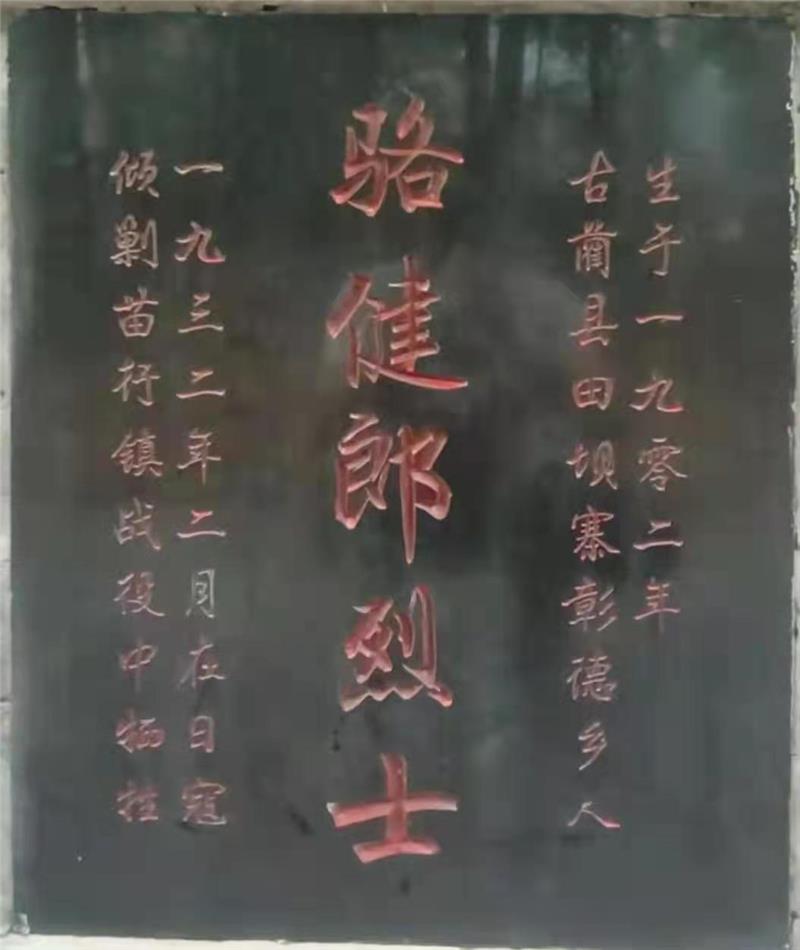 生于一九零二年
古蔺县田坝寨彰德乡人
骆健郎烈士
一九三二年二月在日寇
倾剿苗行镇战役中牺牲